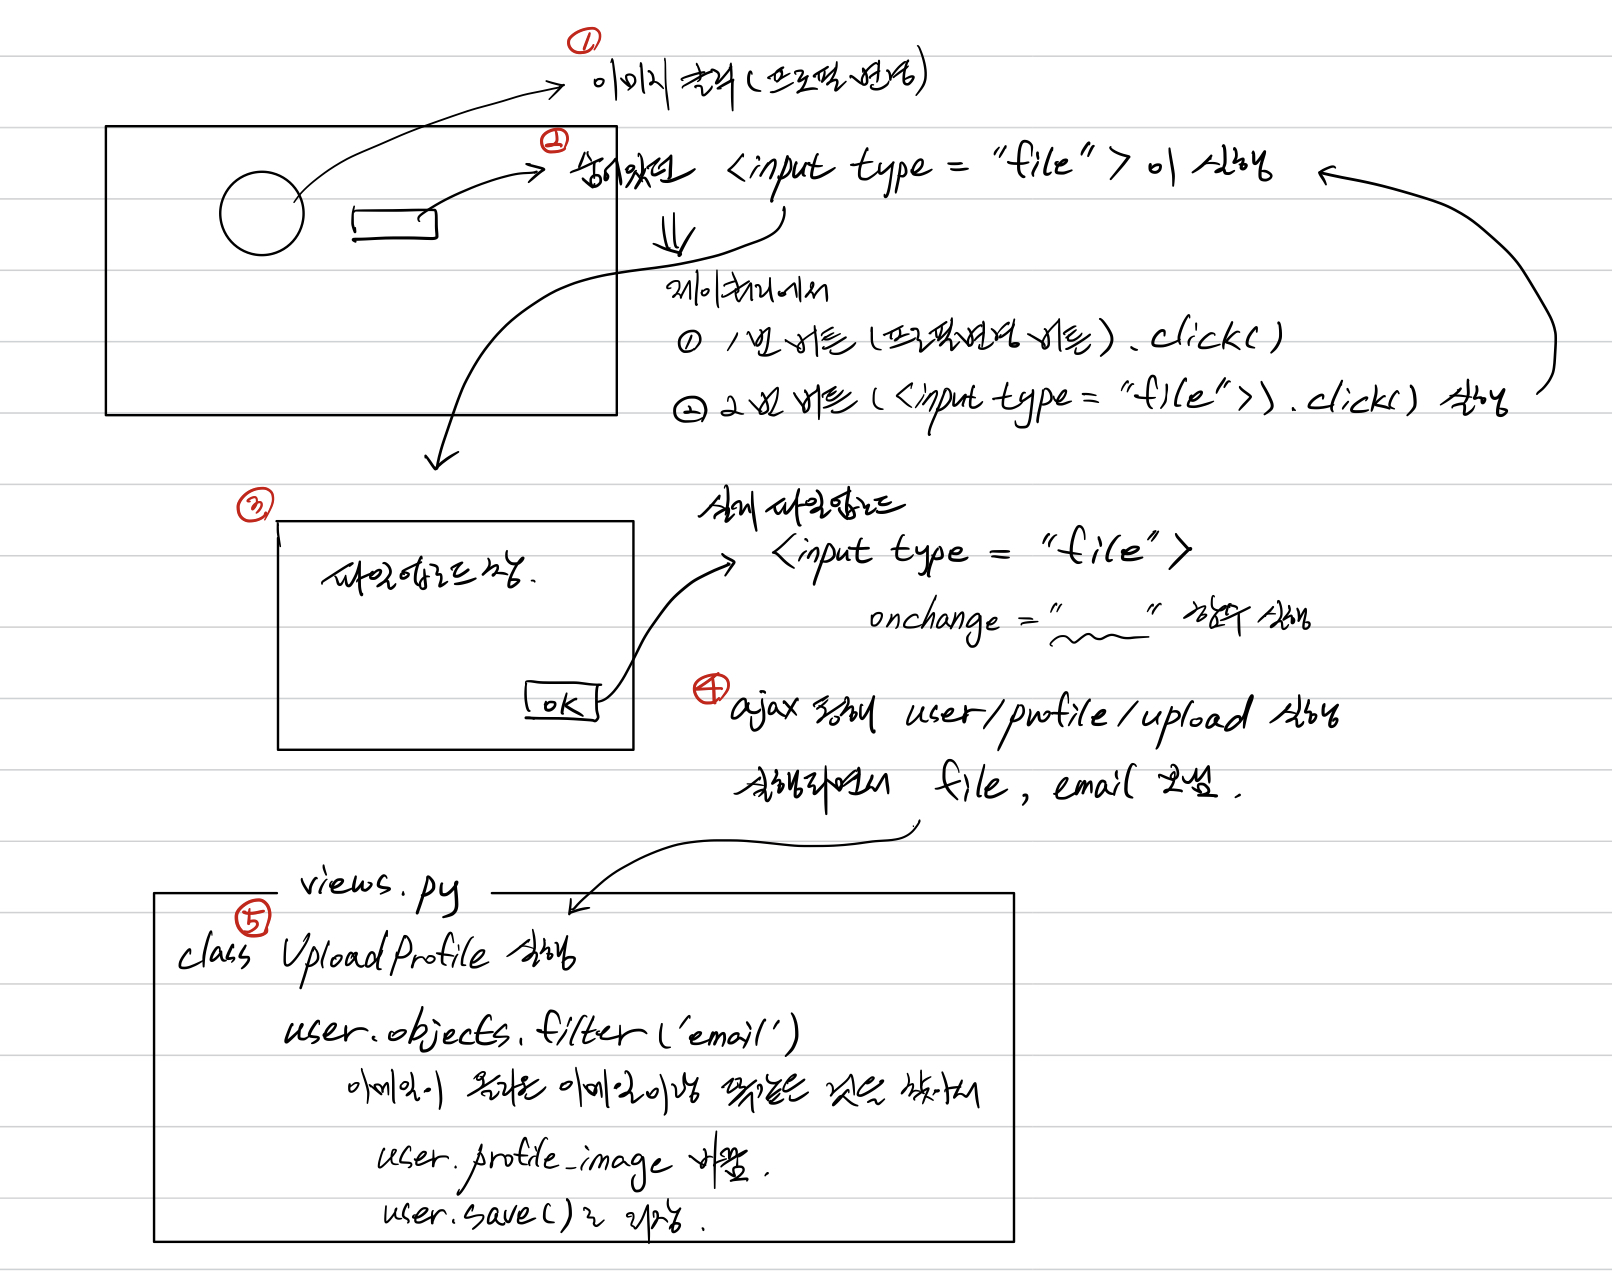 ①
이미지 클릭 (프로필 변경)
②
숨어있던 <input type = "file"> 이 실행
제이쿼리에서
① 1번 버튼 (프로필변경 버튼).click()
② 2번 버튼 (<input type = "file">).click() 실행
③
파일업로드 창.
OK
실제 파일업로드
<input type = "file">
onchange = "    " 함수 실행
④
ajax 통해 user/profile/upload 실행
실행하면서 file, email 보냄.
views.py
⑤
class UploadProfile 실행
user.objects.filter('email')
이메일이 올라온 이메일이랑 똑같은 것은 찾아서
user.profile_image 바꿈.
user.save()로 저장.